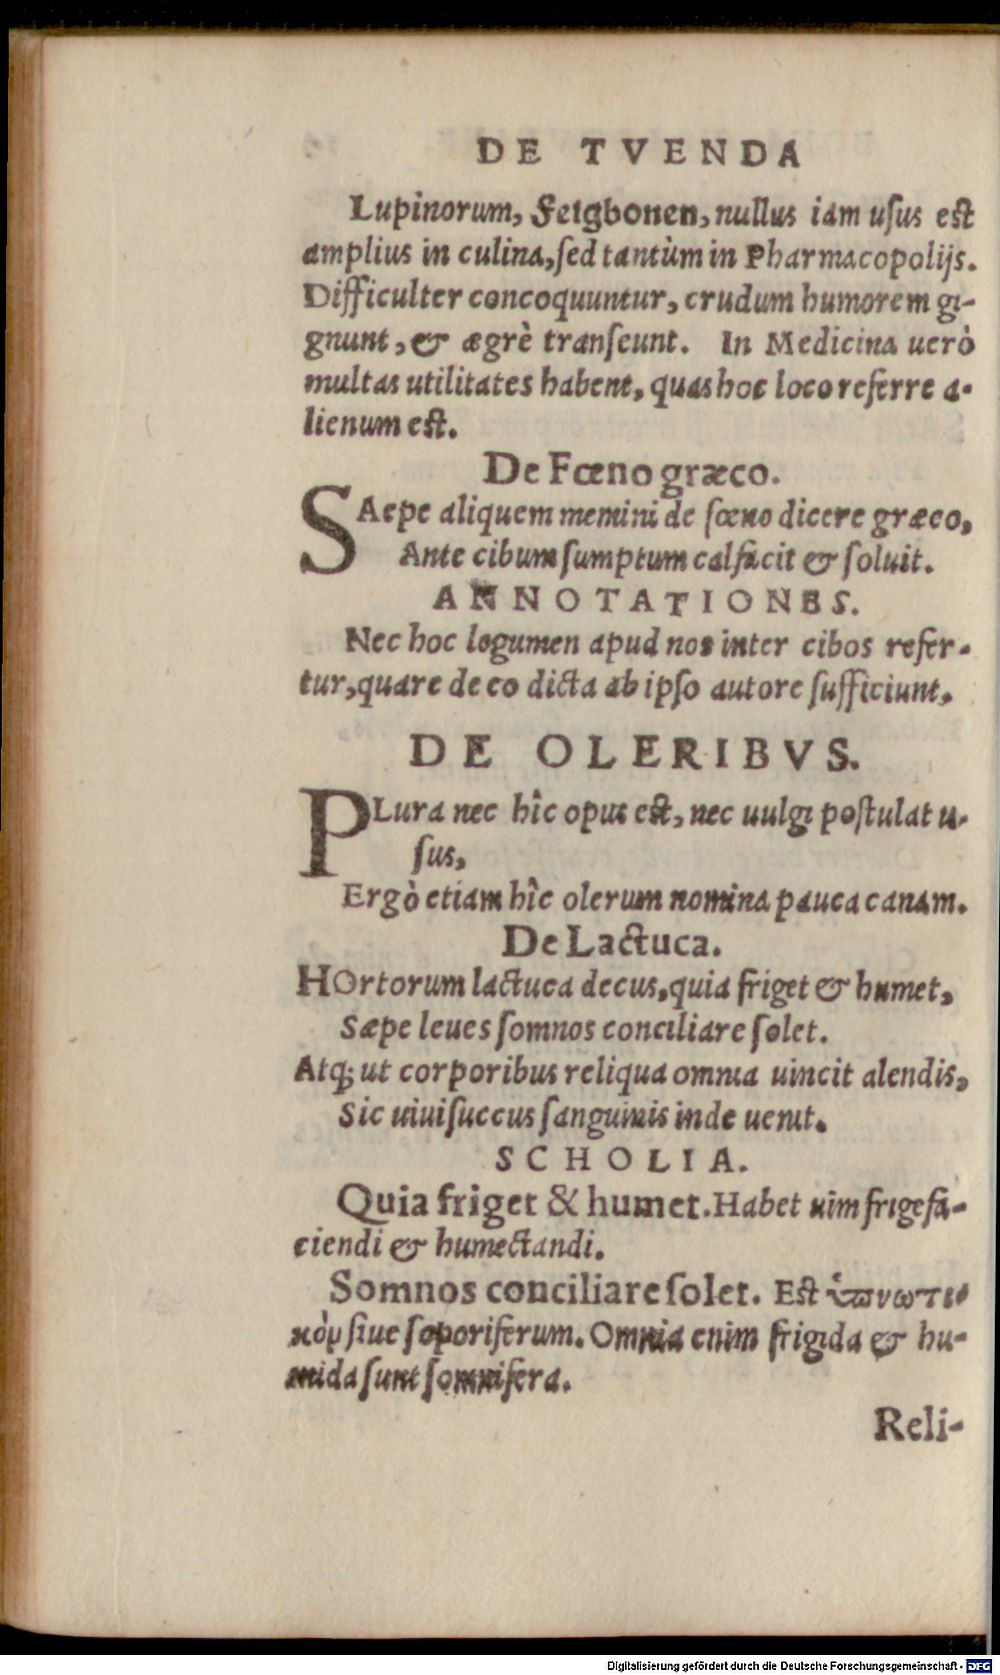 DE TVENDA
Lupinorum, Feigbonen, nullus iam uſus eſt
amplius in culina, ſed tantùm in Pharmacopolijs.
Difficulter concoquuntur, crudum humorem gi-
gnunt, & ægrè tranſeunt. In Medicina uerò
multas utilitates habent, quas hoc loco referre a-
lienum eſt.
De Fœno græco.
SAepe aliquem memini de fœno dicere græco,
Ante cibum ſumptum calfacit & ſoluit.
ANNOTATIONES.
Nec hoc legumen apud nos inter cibos refer-
tur, quare de eo dicta ab ipſo autore ſufficiunt.
DE OLERIBVS.
PLura nec hîc opus eſt, nec uulgi poſtulat u-
ſus,
Ergò etiam hîc olerum nomina pauca canam.
De Lactuca.
HOrtorum lactuca decus, quia friget & humet,
Sæpe leues ſomnos conciliare ſolet.
Atq; ut corporibus reliqua omnia uincit alendis,
Sic uiui ſuccus ſanguinis inde uenit.
SCHOLIA.
Quia friget & humet. Habet uim frigefa-
ciendi & humectandi.
Somnos conciliare ſolet. Eſt ὑπνωτι-
κὸν ſiue ſoporiferum. Omnia enim frigida & hu-
mida ſunt ſomnifera.
Reli-
Digitalisierung gefördert durch die Deutsche Forschungsgemeinschaft - DFG